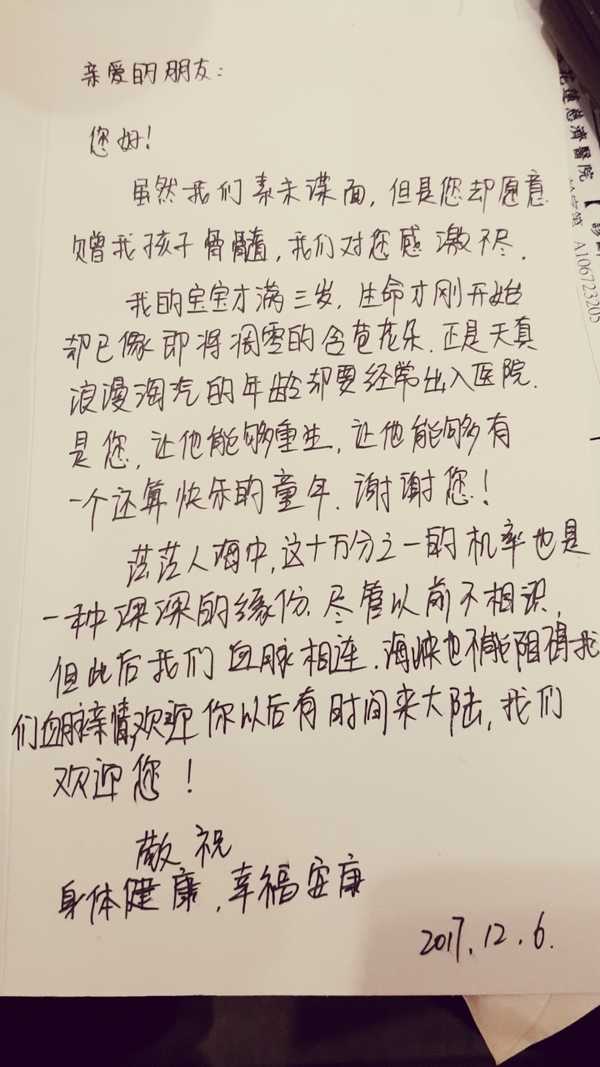 亲爱的朋友：
您好！
虽然我们素未谋面，但是您却愿意
赠我孩子骨髓，我们对您感激不尽．
我的宝宝才满三岁．生命才刚开始
却已像即将凋零的含苞花朵．正是天真
浪漫淘气的年龄却要经常出入医院．
是您，让他能够重生，让他能够有
一个还算快乐的童年．谢谢您！
茫茫人海中，这十万分之一的机率也是
一种深深的缘份．尽管以前不相识，
但此后我们血脉相连．海峡也不能阻碍我
们血脉亲情，欢迎你以后有时间来大陆，我们
欢迎您！
敬祝
身体健康，幸福安康
2017.12.6.
花莲慈濟醫院
A106723205